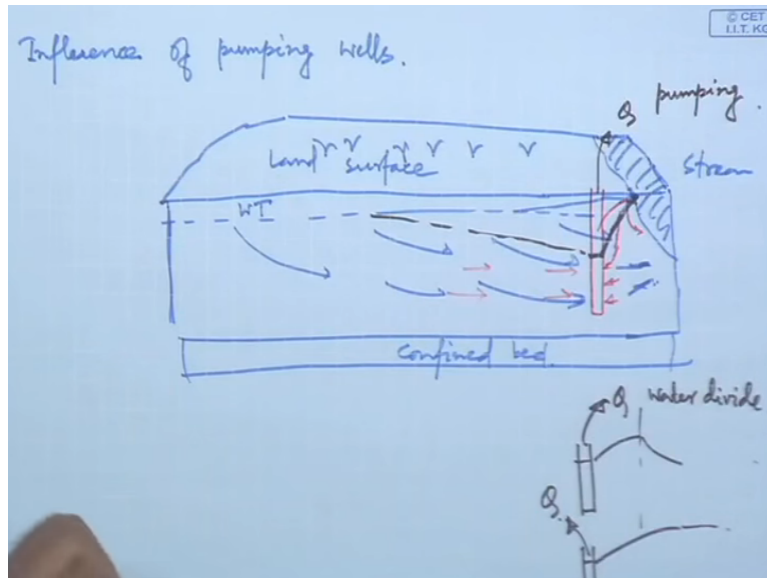 © CET
I.I.T. KG
Influence of pumping wells.
Q pumping.
Land surface
Stream
WT
Confined bed
Q water divide
Q